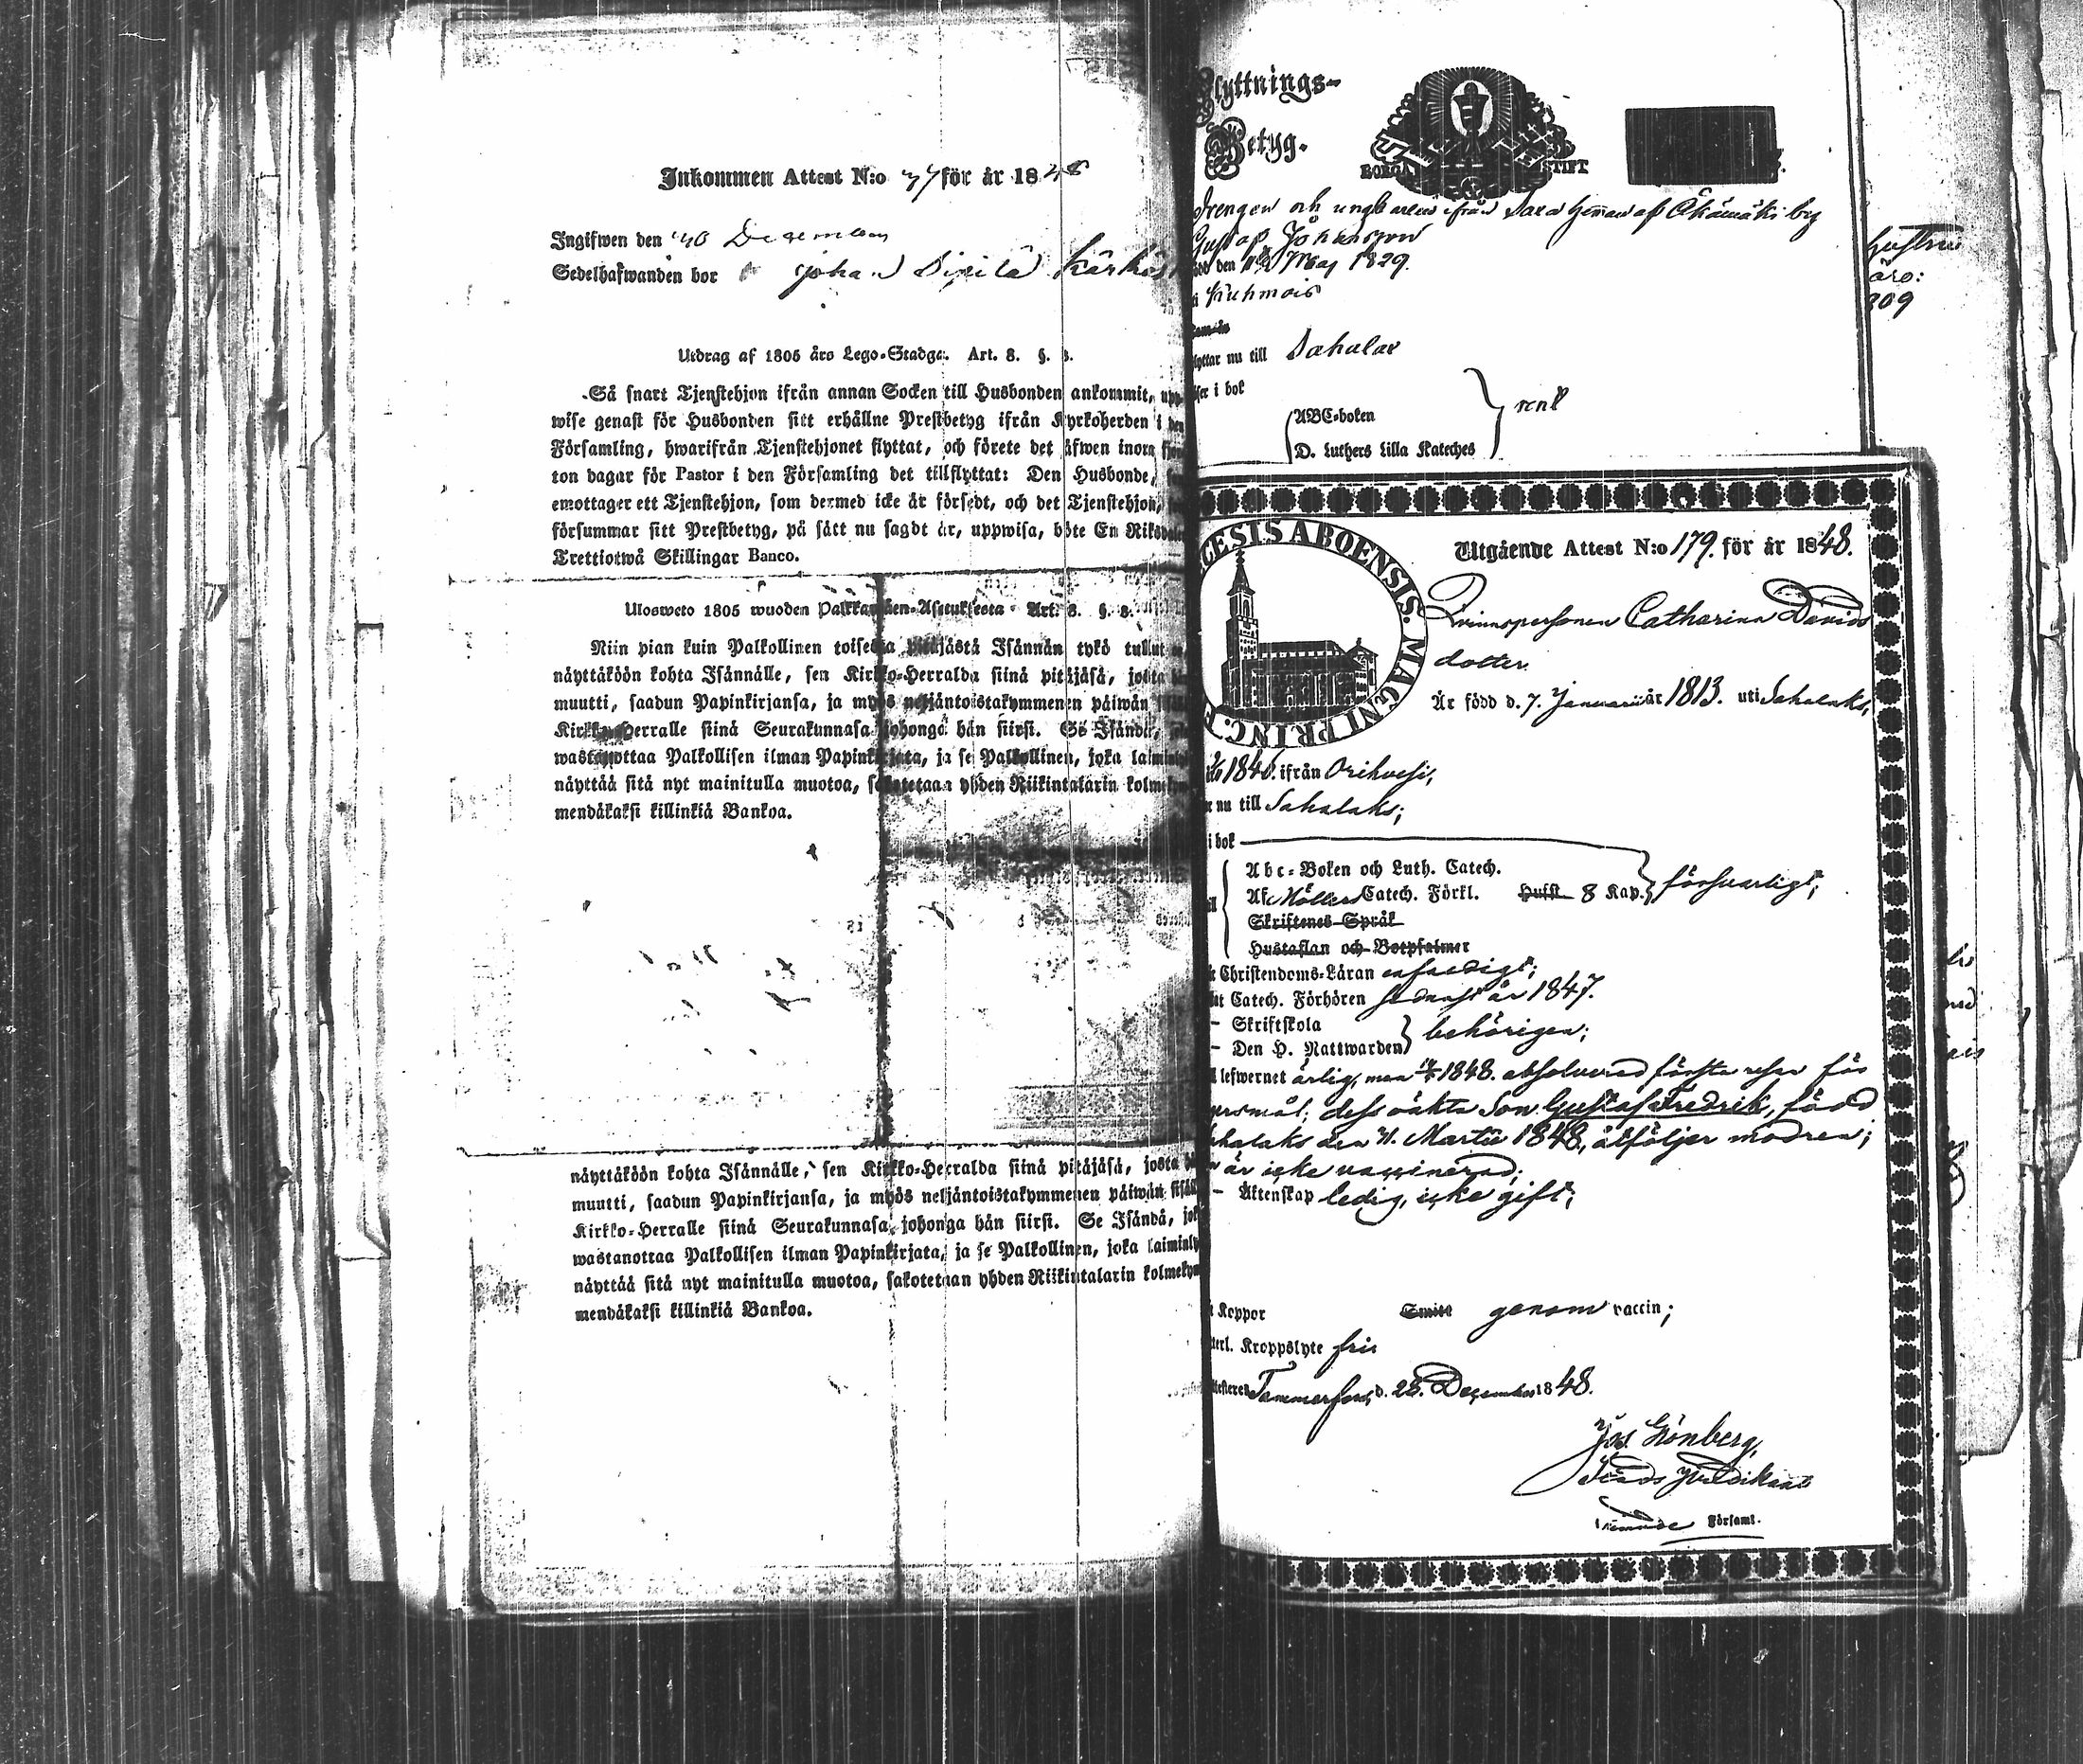 Inkommen Attest N:o 77 för år 1848
Ingifwen den 30 December
Sedelhafwanden bor Johan Sipilä Kärkis
Utdrag af 1805 års Lego-Stadga. Art. 8. §. 8.
Så snart Tjenstehjon ifrån annan Socken till Husbonden ankommit, upp-
wise genast för Husbonden sitt erhållne Prestbetyg ifrån Kyrkoherden i den
Församling, hwarifrån Tjenstehjonet flyttat, och förete det äfwen inom fjor-
ton dagar för Pastor i den Församling det tillflyttat: Den Husbonde,
emottager ett Tjenstehjon, som dermed icke är försedt, och det Tjenstehjon,
försummar sitt Prestbetyg, på sätt nu sagdt är, uppwisa, böte En Riksdaler
Trettiotwå Skillingar Banco.
Ulosweto 1805 wuoden Palkkawäen-Asetuksesta Art. 8. §. 8.
Niin pian kuin Palkollinen toisesta pitäjästä Isännän tykö tullut
näyttäköön kohta Isännälle, sen Kirkko-Herralda siinä pitäjäsä, josta hän
muutti, saadun Papinkirjansa, ja myös neljäntoistakymmenen päiwän sisällä
Kirkko-Herralle siinä Seurakunnasa johonga hän siirsi. Se Isändä, joka
wastanottaa Palkollisen ilman Papinkirjata, ja se Palkollinen, joka laiminlyö
näyttää sitä nyt mainitulla muotoa, sakotetaan yhden Riikintalarin kolmekym-
mendäkaksi killinkiä Bankoa.
näyttäköön kohta Isännälle, sen Kirkko-Herralda siinä pitäjäsä, josta hän
muutti, saadun Papinkirjansa, ja myös neljäntoistakymmenen päiwän sisällä
Kirkko-Herralle siinä Seurakunnasa johonga hän siirsi. Se Isändä, jok
wastanottaa Palkollisen ilman Papinkirjata, ja se Palkollinen, joka laiminly
näyttää sitä nyt mainitulla muotoa, sakotetaan yhden Riikintalarin kolmekym
mendäkaksi killinkiä Bankoa.
Flyttnings-
Betyg.
BORGÅ STIFT
Drengen och ungkarlen ifrån Sara Heman af Äkämäki by
Gustaf Johansson
född den Maj 1829.
i Kuhmois
flyttar nu till Sahalax
läser i bok
ABC-boken
D. Luthers Lilla Kateches
rent
Gustava
äro:
809
ECESIS ABOENSIS. MAGNI PRINC. F
Utgående Attest N:o 179. för år 1848.
Qvinnspersonen Catharina Davids
dotter
Är född d. 7. Januarii år 1813. uti Sahalaks,
1846. ifrån Orihvesi,
r nu till Sahalaks;
i bok
Abc-Boken och Luth. Catech.
Af Möllers Catech. Förkl. Hufst 8 Kap. försvarligt;
Skriftenes Språk
Hustaflan och Botpsalmer
Christendoms-Läran enfaldigt;
Catech. Förhören sednast år 1847.
– Skriftskola
– Den H. Nattwarden behörigen;
lefwernet ärlig, men 1848. absolverad första resan för
ersmål; dess oäkta Son Gustaf Fredrik, född
Sahalaks den 21. Martii 1848, åtföljer modren;
n är icke vaccinerad;
– Äktenskap ledig, icke gift;
Koppor Smitt genom vaccin;
terl. Kroppslyte fri
Attesteras Tammerfors, d. 28. December 1848.
Jos. Grönberg,
Stads Predikant
Församl.